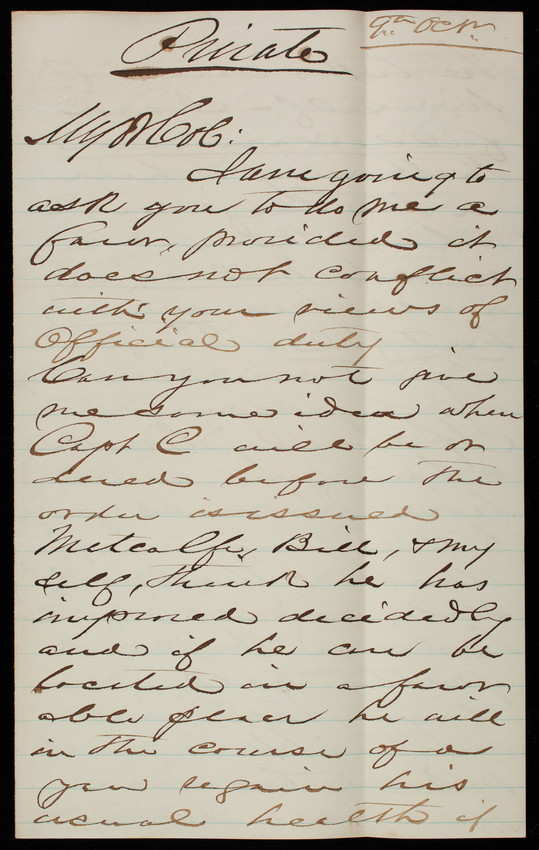 9th Octr
Private
My Dr Col:
I am going to
ask you to do me a
favor, provided it
does not conflict
with your views of
Official duty
Can you not give
me some idea when
Capt C will be or
dered before the
order is issued
Metcalfe, Bill, & my
self, think he has
improved decidedly
and if he can be
located in a favor
able place he will
in the course of a
year regain his
usual health if